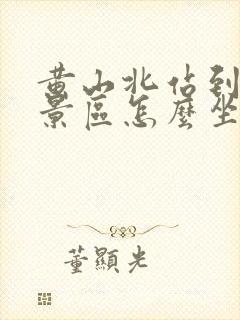 黄山北佔到
景區怎麽坐
董顯光